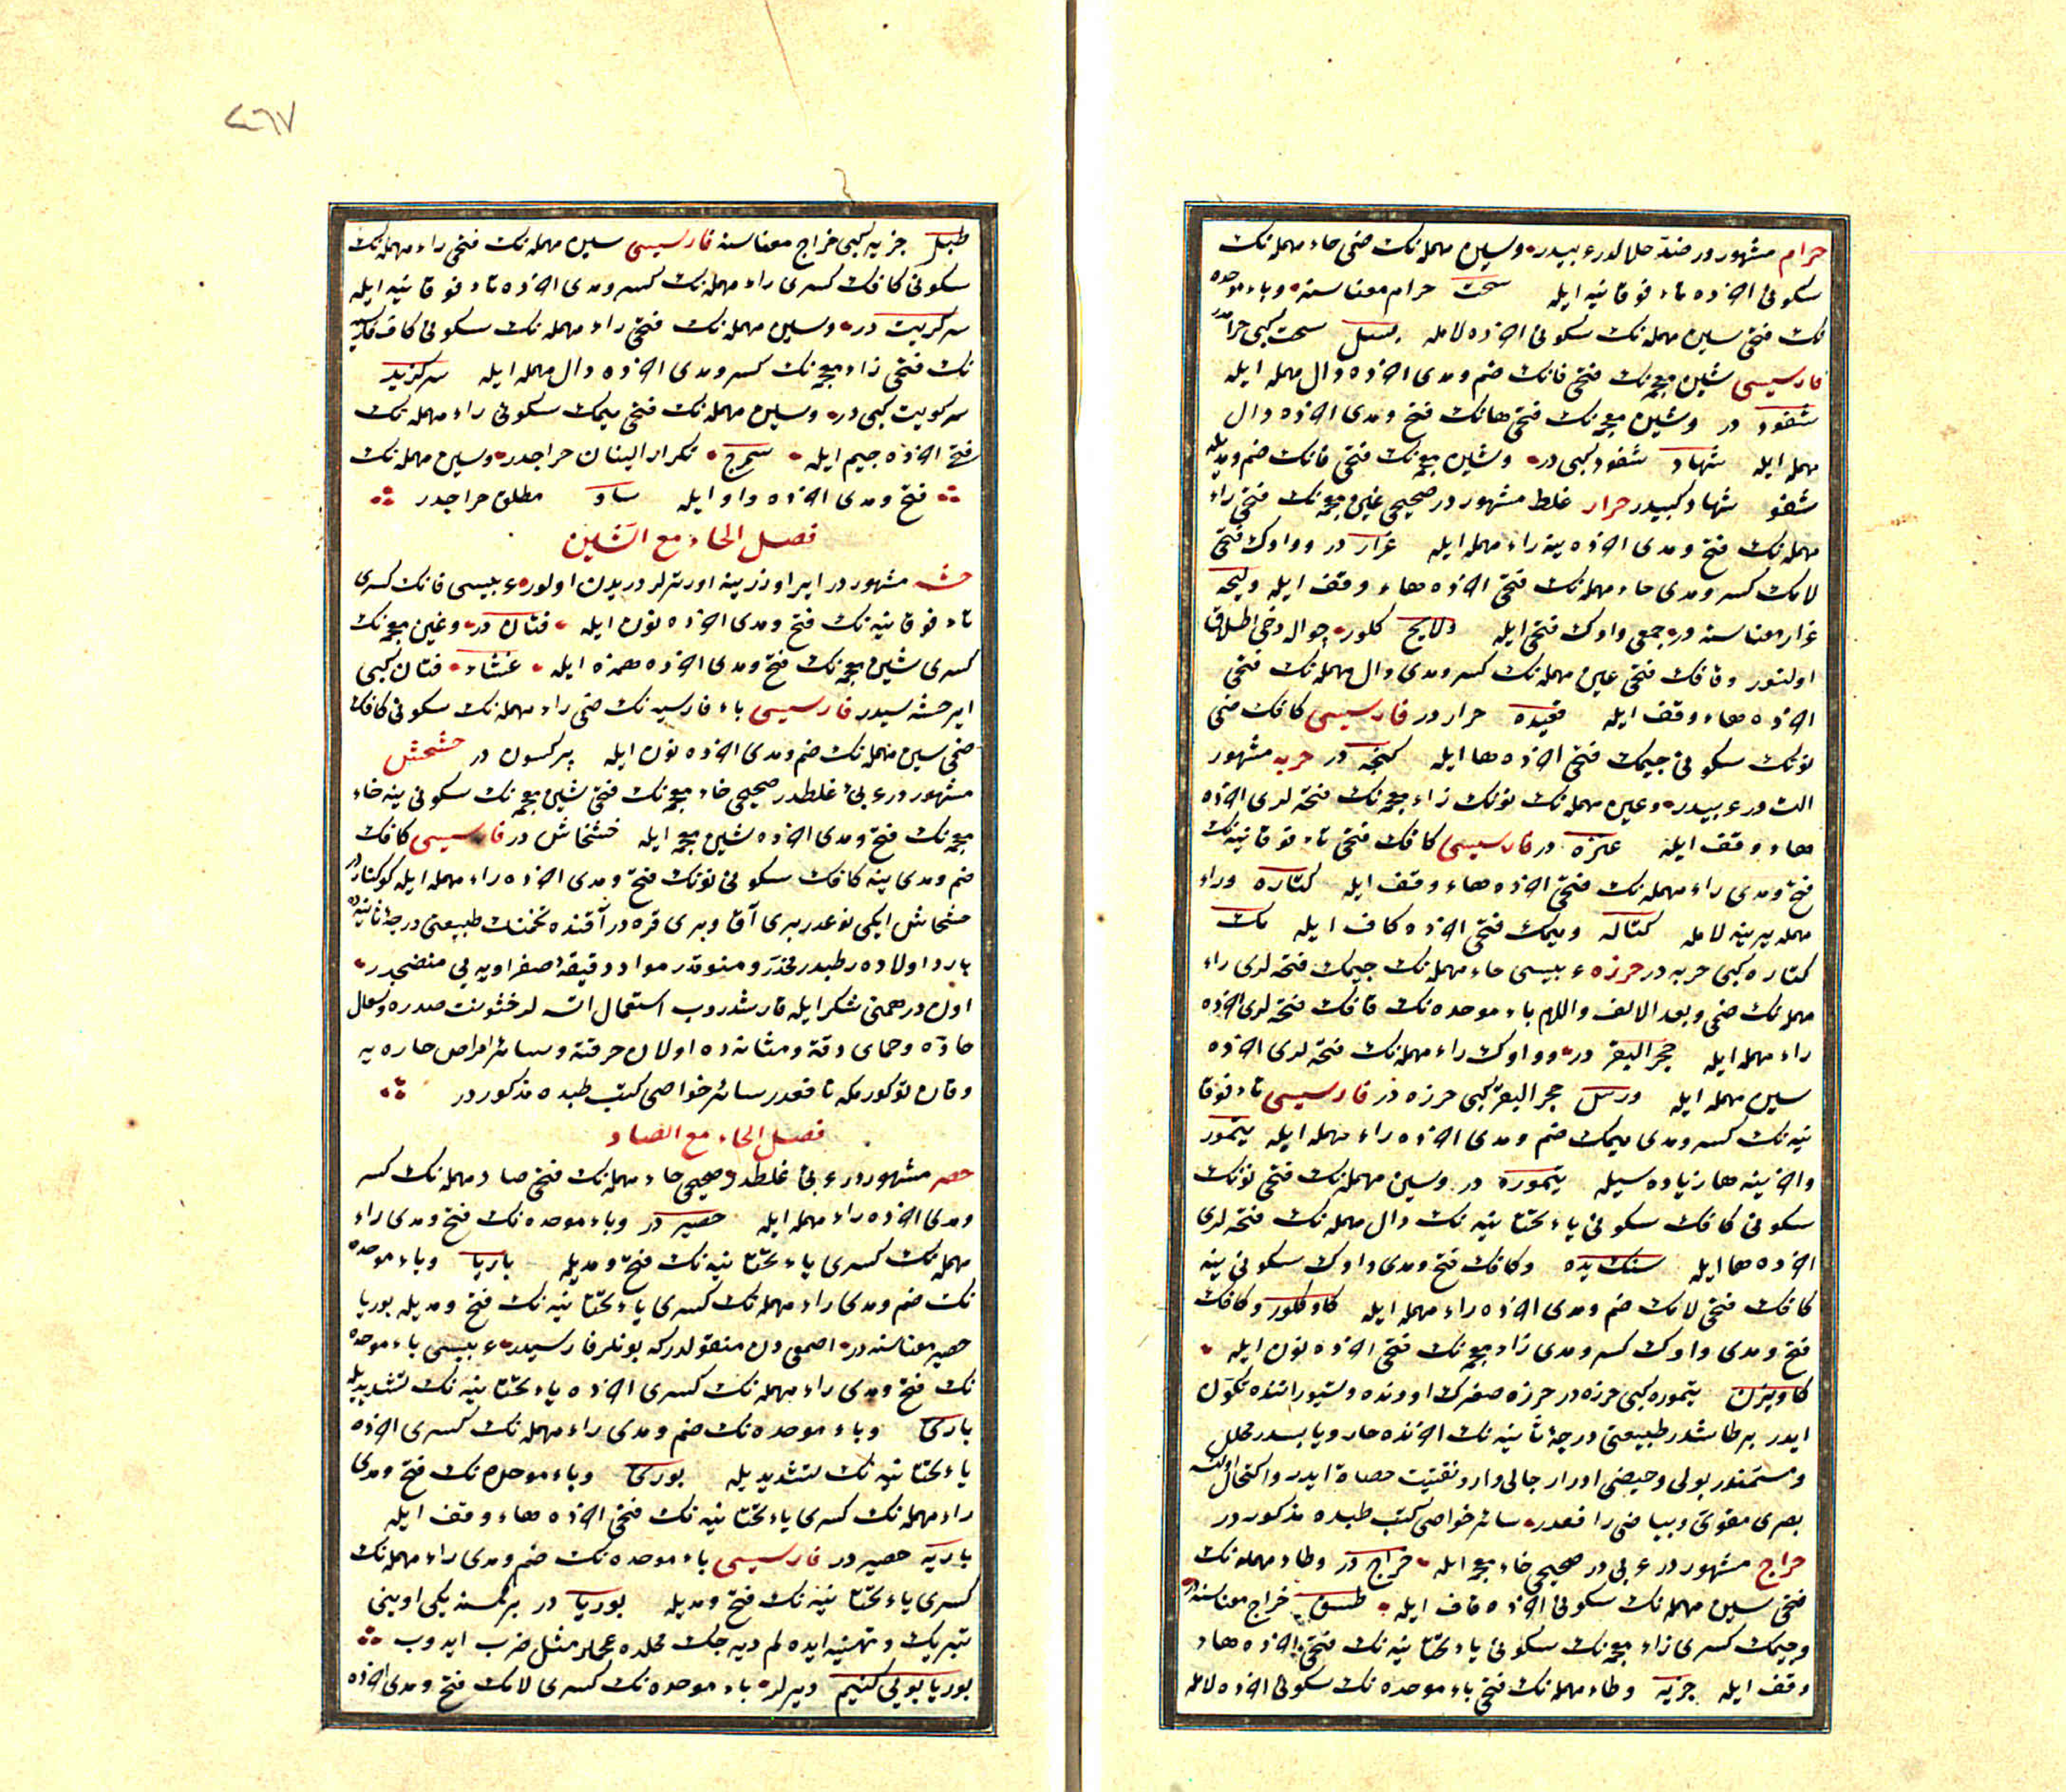 حرام مشهوردر ضد حلالدر عربیدر وسین مهمله‌نك ضمی حاء مهمله‌نك
سكونی آخرده تاء فوقانیه ایله سحت حرام معناسنه وباء موحده
نك فتحی سین مهمله‌نك سكونی آخرده لامله بسل سحت كبی حرامدر
فارسیسی شین معجمه‌نك فتحی فانك ضم ومدی آخرده دال مهمله ایله
شفود در وشین معجمه‌نك فتحی هانك فتح ومدی آخرده دال
مهمله ایله شهاد شفود كبی در وشین معجمه‌نك فتحی فانك ضم ومدیله
شفو شهاد كبیدر حرار غلط مشهوردر صحیحی غین معجمه‌نك فتحی راء
مهمله‌نك فتح ومدی آخرده ینه راء مهمله ایله غرار در وواوك فتحی
لامك كسر ومدی حاء مهمله‌نك فتحی آخرده هاء وقف ایله ولیحه
غرار معناسنه در جمعی واوك فتحی ایله ولایح كلور جواله دخی اطلاق
اولنور وقافك فتحی عین مهمله‌نك كسر ومدی دال مهمله‌نك فتحی
آخرده هاء وقف ایله قعیده حرار در فارسیسی كافك ضمی
نونك سكونی جیمك فتحی آخرده ها ایله كنجه در حربه مشهور
آلتدر عربیدر وعین مهمله‌نك نونك زاء معجمه‌نك فتحه‌لری آخرده
هاء وقف ایله عنزه در فارسیسی كافك فتحی تاء فوقانیه‌نك
فتح ومدی راء مهمله‌نك فتحی آخرده هاء وقف ایله كتاره وراء
مهمله یرینه لامله كتاله ومیمك فتحی آخرده كاف ایله مك
كتاره كبی حربه در حرزه عربیسی حاء مهمله‌نك جیمك فتحه‌لری راء
مهمله‌نك ضمی وبعد الالف واللام باء موحده‌نك قافك فتحه‌لری آخرده
راء مهمله ایله حجر البقر در وواوك راء مهمله‌نك فتحه‌لری آخرده
سین مهمله ایله ورس حجر البقر كبی حرزه در فارسیسی تاء فوقا
نیه‌نك كسر ومدی میمك ضم ومدی آخرده راء مهمله ایله تیمور
وآخرینه ها زیاده‌سیله تیموره در وسین مهمله‌نك فتحی نونك
سكونی كافك سكونی یاء تحتانیه‌نك دال مهمله‌نك فتحه‌لری
آخرده ها ایله سنك یده وكافك فتح ومدی واوك سكونی ینه
كافك فتحی لامك ضم ومدی آخرده راء مهمله ایله كاوكلور وكافك
فتح ومدی واوك كسر ومدی زاء معجمه‌نك فتحی آخرده نون ایله
كاویزن تیموره كبی حرزه در حرزه صغرك اودنده وشیردانند‌ه تكون
ایدر بر طاشدر طبیعتی درجهٔ ثانیه‌نك آخرنده حار ویابسدر محلل
ومسمندر بولی وحیضی ادرار جالی وارد تفتیت حصاة ایدر واكتحال اولنسه
بصری مقوی وبیاضی رافعدر سائر خواصی كتب طبده مذكوردر
حراج مشهوردر عربی در صحیحی خاء معجمه ایله خراج در وطاء مهمله‌نك
فتحی سین مهمله‌نك سكونی آخرده قاف ایله طسق خراج معناسنه در
وجیمك كسری زاء معجمه‌نك سكونی یاء تحتانیه‌نك فتحی آخرده هاء
وقف ایله جزیه وطاء مهمله‌نك فتحی باء موحده‌نك سكونی آخرده لامله
٢٦٧
طبل جزیه كبی خراج معناسنه فارسیسی سین مهمله‌نك فتحی راء مهمله‌نك
سكونی كافك كسری راء مهمله‌نك كسر ومدی آخرده تاء فوقانیه ایله
سركریت در وسین مهمله‌نك فتحی راء مهمله‌نك سكونی كاف فارسیه
نك فتحی زاء معجمه‌نك كسر ومدی آخرده دال مهمله ایله سركزید
سركریت كبی در وسین مهمله‌نك فتحی میمك سكونی راء مهمله‌نك
فتحی آخرده جیم ایله سمرج تكرار النان حراجدر وسین مهمله‌نك
فتح ومدی آخرده واو ایله ساو مطلق حراجدر
فصل الحاء مع الشین
حشه مشهوردر ایر اوزرینه اورترلر دریدن اولور عربیسی فانك كسری
تاء فوقانیه‌نك فتح ومدی آخرده نون ایله فتان در وغین معجمه‌نك
كسری شین معجمه‌نك فتح ومدی آخرده همزه ایله غشاء فتان كبی
ایر حشه‌سیدر فارسیسی باء فارسیه‌نك ضمی راء مهمله‌نك سكونی كافك
ضمی سین مهمله‌نك ضم ومدی آخرده نون ایله پركسون در حشحش
مشهوردر عربی غلطدر صحیحی خاء معجمه‌نك فتحی شین معجمه‌نك سكونی ینه خاء
معجمه‌نك فتح ومدی آخرده شین معجمه ایله خشخاش در فارسیسی كافك
ضم ومدی ینه كافك سكونی نونك فتح ومدی آخرده راء مهمله ایله كوكنار در
خشخاش ایكی نوعدر بری آق وبری قره در آقنده تخمنك طبیعتی درجهٔ ثانیه‌ده
بارد اولاده رطبدر مخدر ومنومدر مواد دقیقهٔ صفراویه‌یی منضجدر
اون درهمنی شكر ایله قارشدروب استعمال اتسه‌لر خشونت صدره وسعال
حاده وحمای دقه ومثانه‌ده اولان حرقته وسائر امراض حاره‌یه
وقان توكورمكه نافعدر سائر خواصی كتب طبده مذكوردر
فصل الحاء مع الصاد
حصر مشهوردر عربی غلطدر صحیحی حاء مهمله‌نك فتحی صاد مهمله‌نك كسر
ومدی آخرده راء مهمله ایله حصیر در وباء موحده‌نك فتح ومدی راء
مهمله‌نك كسری یاء تحتانیه‌نك فتح ومدیله باریا وباء موحده
نك ضم ومدی راء مهمله‌نك كسری یاء تحتانیه‌نك فتح ومدیله بوریا
حصیر معناسنه در اصمعی دن منقولدر كه بونلر فارسیدر عربیسی باء موحده
نك فتح ومدی راء مهمله‌نك كسری آخرده یاء تحتانیه‌نك تشدیدیله
باری وباء موحده‌نك ضم ومدی راء مهمله‌نك كسری آخرده
یاء تحتانیه‌نك تشدیدیله بوری وباء موحده‌نك فتح ومدی
راء مهمله‌نك كسری یاء تحتانیه‌نك فتحی آخرده هاء وقف ایله
باریه حصیر در فارسیسی باء موحده‌نك ضم ومدی راء مهمله‌نك
كسری یاء تحتانیه‌نك فتح ومدیله بوریا در بر كمسنه یكی اوینی
تبریك وتهنیه ایده‌لم دیه‌جك محلده عجملر مثل ضرب ایدوب
بوریا كوبی كنیم دیرلر باء موحده‌نك كسری لامك فتح ومدی آخرده